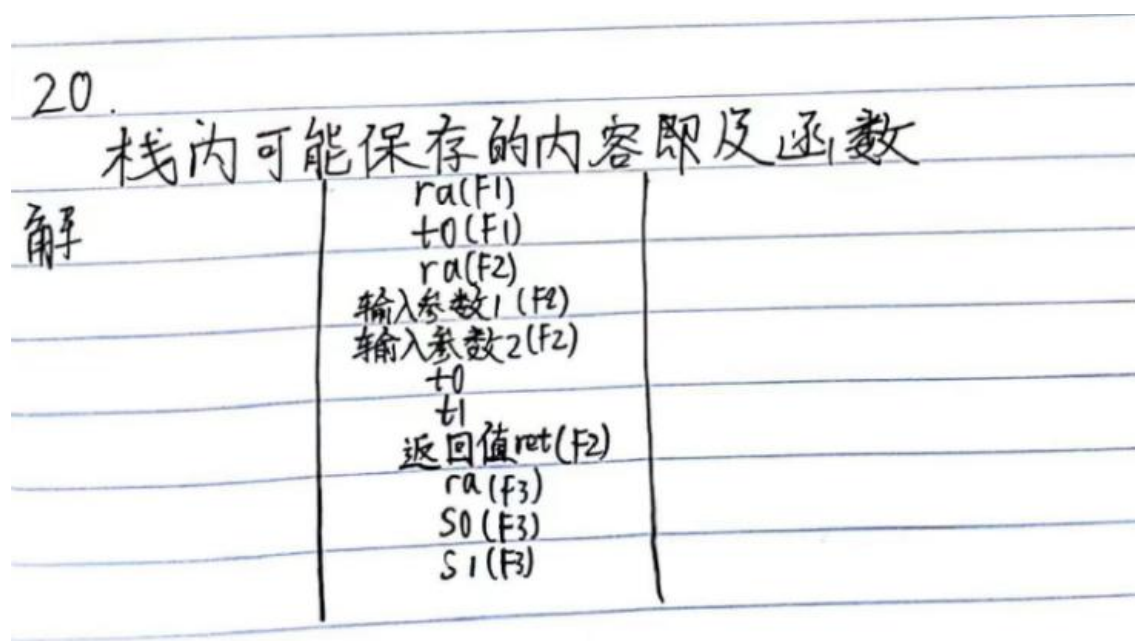 20.
栈内可能保存的内容即及函数
解
ra(F1)
t0(F1)
ra(F2)
输入参数1(F2)
输入参数2(F2)
t0
t1
返回值ret(F2)
ra(F3)
S0(F3)
S1(F3)